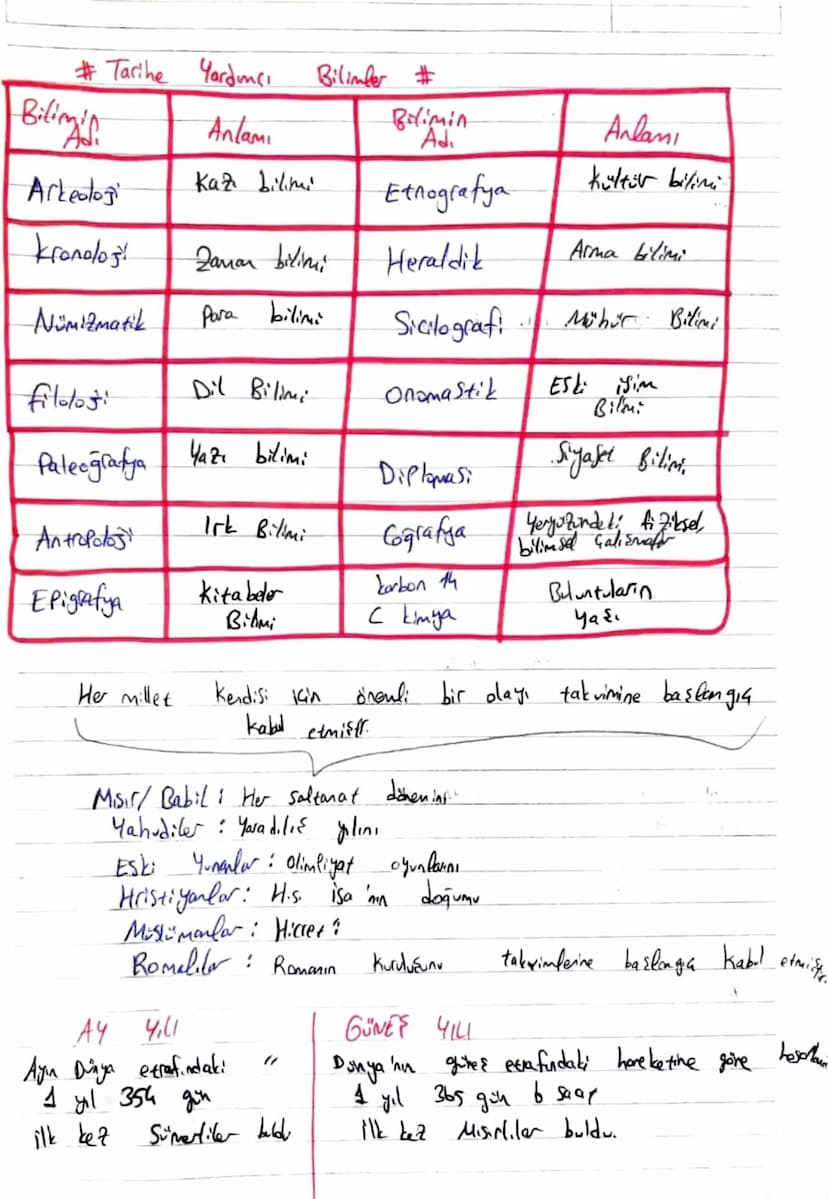 # Tarihe Yardımcı Bilimler #
Bilimin Adı Anlamı Bilimin Adı Anlamı
Arkeoloji Kazı bilimi Etnografya Kültür bilimi
Kronoloji Zaman bilimi Heraldik Arma bilimi
Nümizmatik Para bilimi Sicilografi Mühür Bilimi
Filoloji Dil Bilimi Onomastik Eski isim Bilmi
Paleoğrafya Yazı bilimi Diplomasi Siyaset Bilimi
Antropoloji Irk Bilimi Coğrafya Yeryüzündeki fiziksel, bilimsel çalışmalar
Epigrafya Kitabeler Bilmi karbon 14 C kimya Buluntuların yaşı
Her millet kendisi için önemli bir olayı takvimine başlangıç
kabul etmiştir.
Mısır/ Babil : Her saltanat dönemini
Yahudiler : Yaradılış yılını
Eski Yunanlar : Olimpiyat oyunlarını
Hristiyanlar : H.s. İsa'nın doğumu
Müslümanlar : Hicret :
Romalılar : Romanın kuruluşunu takvimlerine başlangıç kabul etmiştir.
AY YILI
Ayın Dünya etrafındaki "
1 yıl 354 gün
ilk kez Sümerliler buldu
GÜNEŞ YILI
Dünya'nın güneş etrafındaki hareketine göre
1 yıl 365 gün 6 saat
İlk kez Mısırlılar buldu.